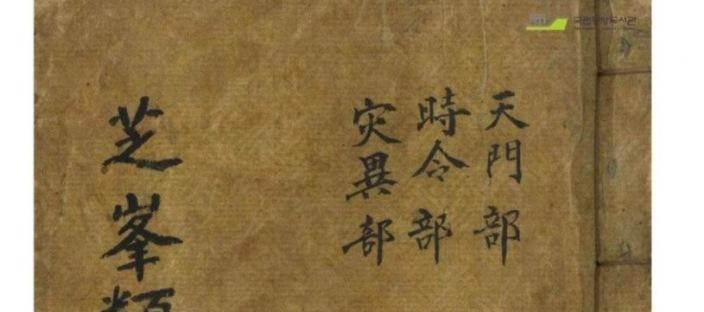 국립중앙도서관
天門部
時令部
灾異部
芝峯類